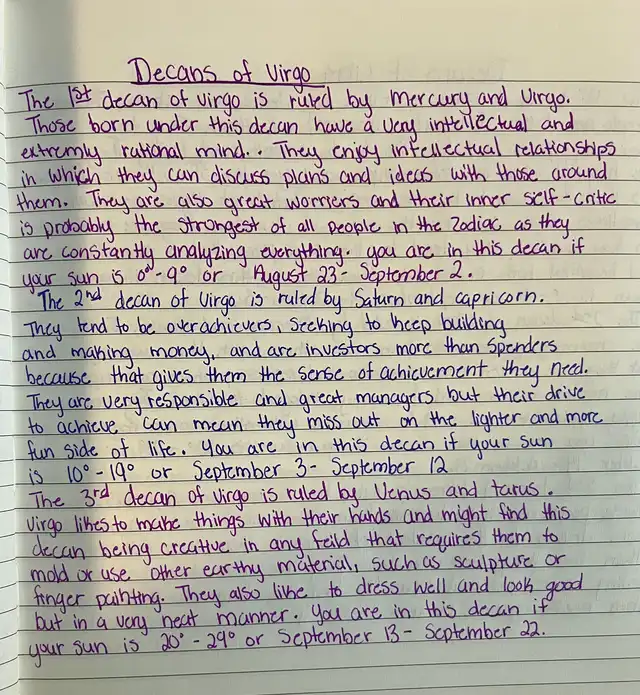 Decans of Virgo
The 1st decan of virgo is ruled by mercury and Virgo.
Those born under this decan have a very intellectual and
extremly rational mind.. They enjoy intellectual relationships
in which they can discuss plans and ideas with those around
them. They are also great worriers and their inner self-critic
is probably the strongest of all people in the Zodiac as they
are constantly analyzing everything. you are in this decan if
your sun is 0°-9° or August 23- September 2.
The 2nd decan of Virgo is ruled by Saturn and capricorn.
They tend to be overachievers, seeking to keep building
and making money, and are investors more than spenders
because that gives them the sense of achievement they need.
They are very responsible and great managers but their drive
to achieve can mean they miss out on the lighter and more
fun side of life. You are in this decan if your sun
is 10°-19° or September 3- September 12
The 3rd decan of virgo is ruled by Venus and tarus.
Virgo likes to make things with their hands and might find this
decan being creative in any feild that requires them to
mold or use other earthy material, such as sculpture or
finger painting. They also like to dress well and look good
but in a very neat manner. you are in this decan if
your sun is 20° -29° or September 13- September 22.